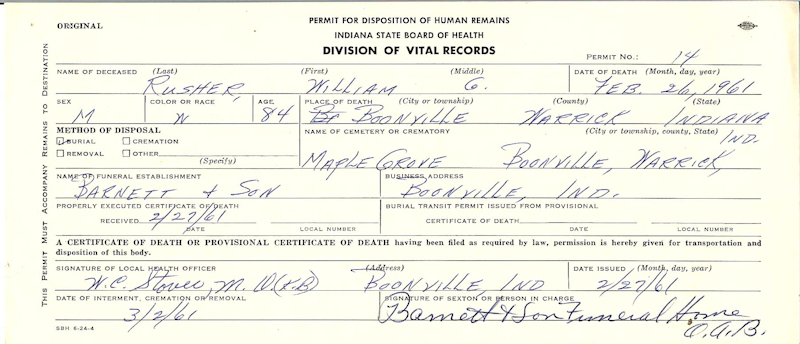 ORIGINAL
PERMIT FOR DISPOSITION OF HUMAN REMAINS
INDIANA STATE BOARD OF HEALTH
DIVISION OF VITAL RECORDS
PERMIT NO.: 14
THIS PERMIT MUST ACCOMPANY REMAINS TO DESTINATION
NAME OF DECEASED (Last) (First) (Middle) DATE OF DEATH (Month, day, year)
RUSHER, WILLIAM G. FEB. 26, 1961
SEX COLOR OR RACE AGE PLACE OF DEATH (City or township) (County) (State)
M W 84 BOONVILLE WARRICK INDIANA
METHOD OF DISPOSAL NAME OF CEMETERY OR CREMATORY (City or township, county, State)
BURIAL CREMATION IND.
REMOVAL OTHER
(Specify) MAPLE GROVE BOONVILLE, WARRICK,
NAME OF FUNERAL ESTABLISHMENT BUSINESS ADDRESS
BARNETT & SON BOONVILLE, IND.
PROPERLY EXECUTED CERTIFICATE OF DEATH BURIAL TRANSIT PERMIT ISSUED FROM PROVISIONAL
RECEIVED 2/27/61 CERTIFICATE OF DEATH
DATE LOCAL NUMBER DATE LOCAL NUMBER
A CERTIFICATE OF DEATH OR PROVISIONAL CERTIFICATE OF DEATH having been filed as required by law, permission is hereby given for transportation and
disposition of this body.
SIGNATURE OF LOCAL HEALTH OFFICER (Address) DATE ISSUED (Month, day, year)
W.C. Stover, M.D. BOONVILLE, IND 2/27/61
DATE OF INTERMENT, CREMATION OR REMOVAL SIGNATURE OF SEXTON OR PERSON IN CHARGE
3/2/61 Barnett & Son Funeral Home
O.A.B.
SBH 6-24-4